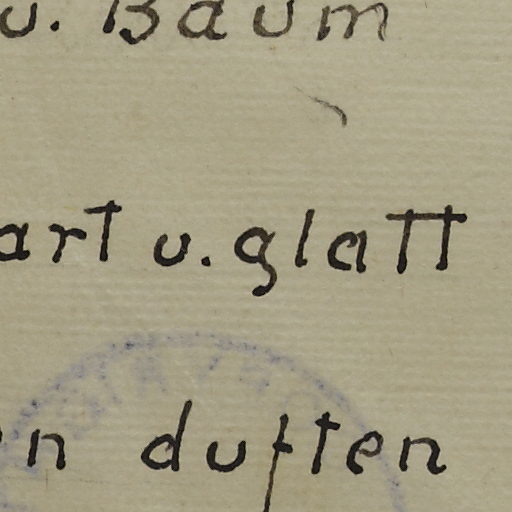 u. Baum
art u. glatt
n duften